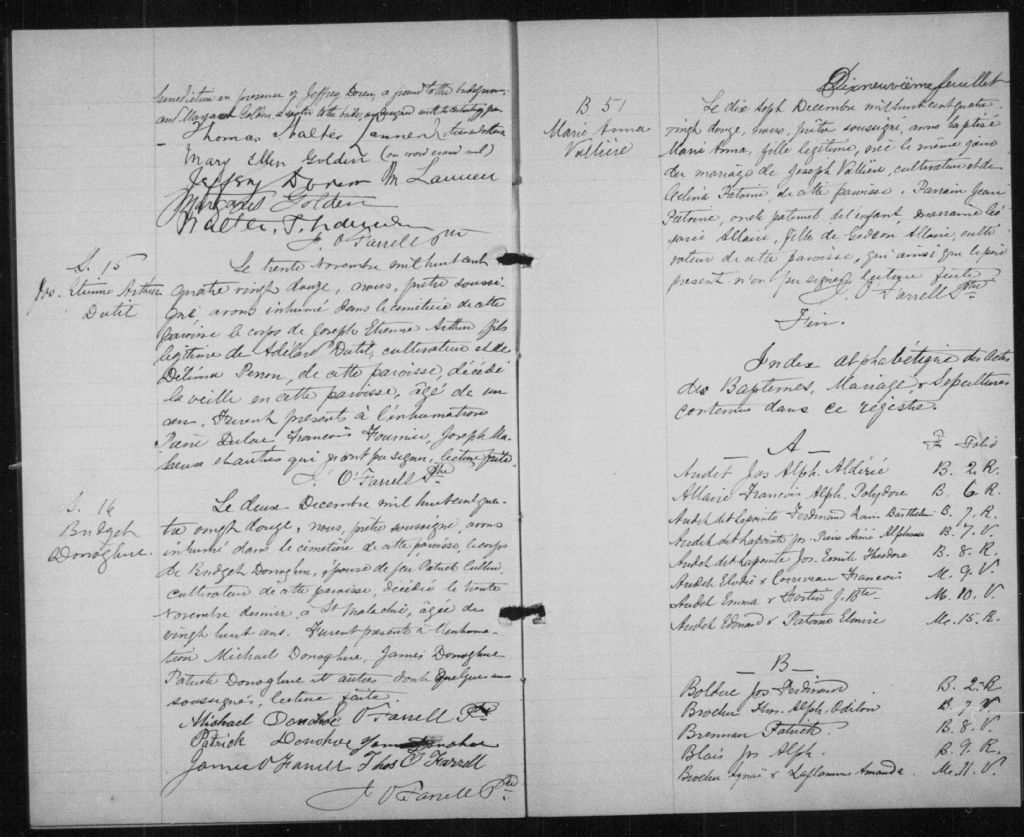 benediction in presence of Jeffrey Doren, a friend to the bridegroom
and Margaret Golden a sister to the bride, undersigned with the contracting
Thomas Walter Lannen
Mary Ellen Golden
Jeffery Doren M Lannen
Margaret Golden
Walter
J. O'Farrell Ptre
S. 15
Jos. Etienne Arthur
Dutil
Le trente Novembre mil huit cent
quatre vingt douze, nous, prêtre soussi-
gné, avons inhumé dans le cimetière de cette
paroisse le corps de Joseph Etienne Arthur fils
légitime de Adélard Dutil, cultivateur et de
Délima Perron, de cette paroisse, décédé
la veille en cette paroisse, âgé de un
an. Furent présents à l'inhumation
Pierre Dulac, François Fournier, Joseph
et autres qui n'ont pu signer, lecture faite.
J. O'Farrell Ptre
S. 16
Bridget
Donoghue
Le deux Décembre mil huit cent qua-
tre vingt douze, nous, prêtre soussigné, avons
inhumé dans le cimetière de cette paroisse, le corps
de Bridget Donoghue, épouse de feu Patrick
cultivateur de cette paroisse, décédée le trente
Novembre dernier à St Malachie, âgée de
vingt huit ans. Furent présents à l'inhuma-
tion Michael Donoghue, James Donoghue
Patrick Donoghue et autres dont quelques uns
soussignés, lecture faite.
Michael Donohoe O'Farrell Ptre
Patrick Donohoe
James O'Farrell Thos O'Farrell
J. O'Farrell Ptre
Dixneuvième feuillet
B 51
Marie Anna
Vallière
Le dix sept Décembre mil huit cent quatre
vingt douze, nous, prêtre soussigné, avons baptisé
Marie Anna, fille légitime, née le même jour
du mariage de Joseph Vallière, cultivateur et de
Célina Patoine, de cette paroisse. Parrain Jean
Patoine, oncle paternel de l'enfant, marraine Cé-
sarie Allaire, fille de Gédéon Allaire, culti-
vateur de cette paroisse, qui ainsi que le père
présent n'ont pu signer, lecture faite
J. O'Farrell Ptre
Fin.
Index alphabétique des Actes
des Baptêmes, Mariage & Sépultures
contenus dans ce régistre.
A
Folio
Audet Jos Alph. Aldéric B. 2. R.
Allaire François Alph. Polydore B. 6. R.
Audet dit Lapointe Ferdinand Louis Barthelemi B. 7. R.
Audet dit Lapointe Jos. Pierre Aimé Alphonse B. 7. V.
Audet dit Lapointe Jos. Emile Theodore B. 8. R.
Audet Elodie & Corriveau François M. 9. V.
Audet Emma & Fortin J. Bte M. 10. V.
Audet Edouard & Patoine Elmire M. 15. R.
B
Bolduc Jos Ferdinand B. 2. R
Brochu Alph. Odilon B. 7. V.
Brennan Patrick B. 8. V.
Blais Jos Alph. B. 9. R.
Brochu Ignace & Laflamme Amanda M. 11. V.